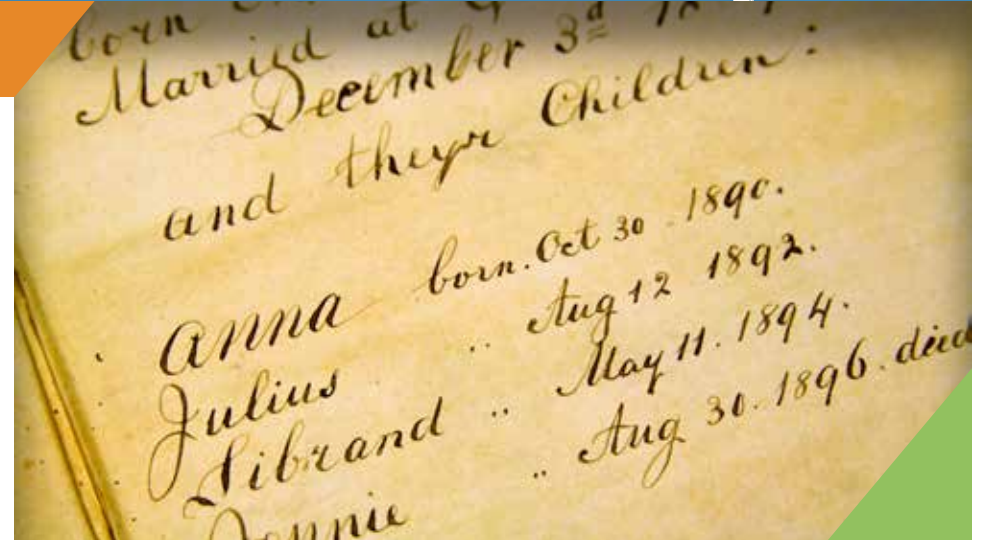 born
Married at
December 3d
and theyr Children:
Anna born. Oct 30 1890.
Julius .. Aug 12 1892.
Sibrand .. May 11. 1894.
Jennie .. Aug 30. 1896. died